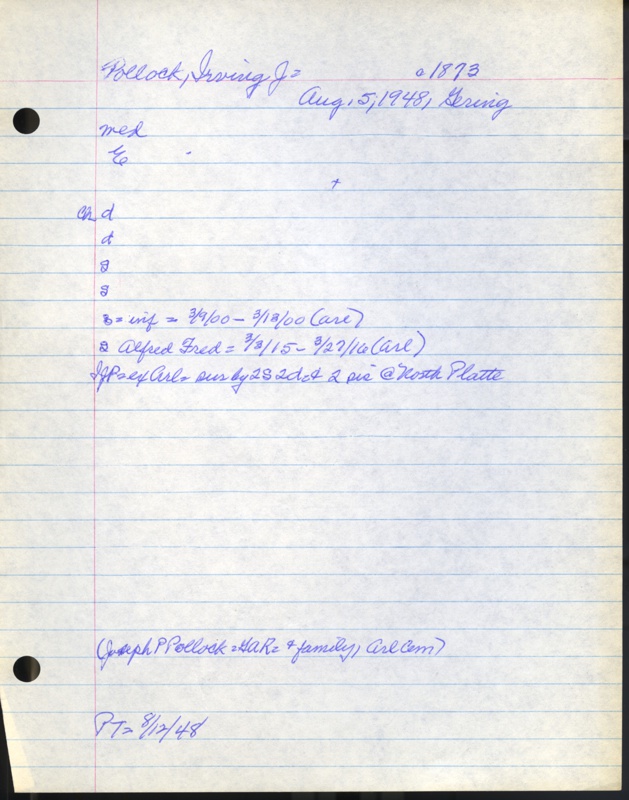 Pollock, Irving J= a 1873
Aug. 5, 1948, Gering
med
+
Ch d
d
s
s
s = inf = 3/9/00 - 3/18/00 (arl)
s Alfred Fred = 3/3/15 - 3/27/16 (arl)
IJP = ex Arl = sur by 2S 2d & 2 sis @ North Platte
(Joseph P Pollock = GAR = + family, Arl Cem)
PT = 8/12/48